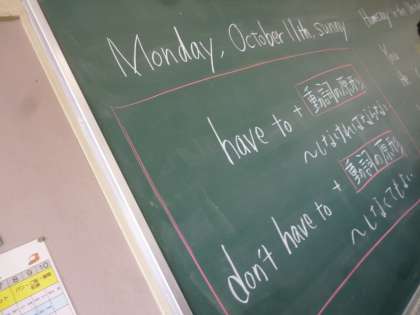 Monday, October 11th, sunny
You
have to + 動詞の原形
～しなければならない
don't have to + 動詞の原形
～しなくてもよい
7 8 9 10